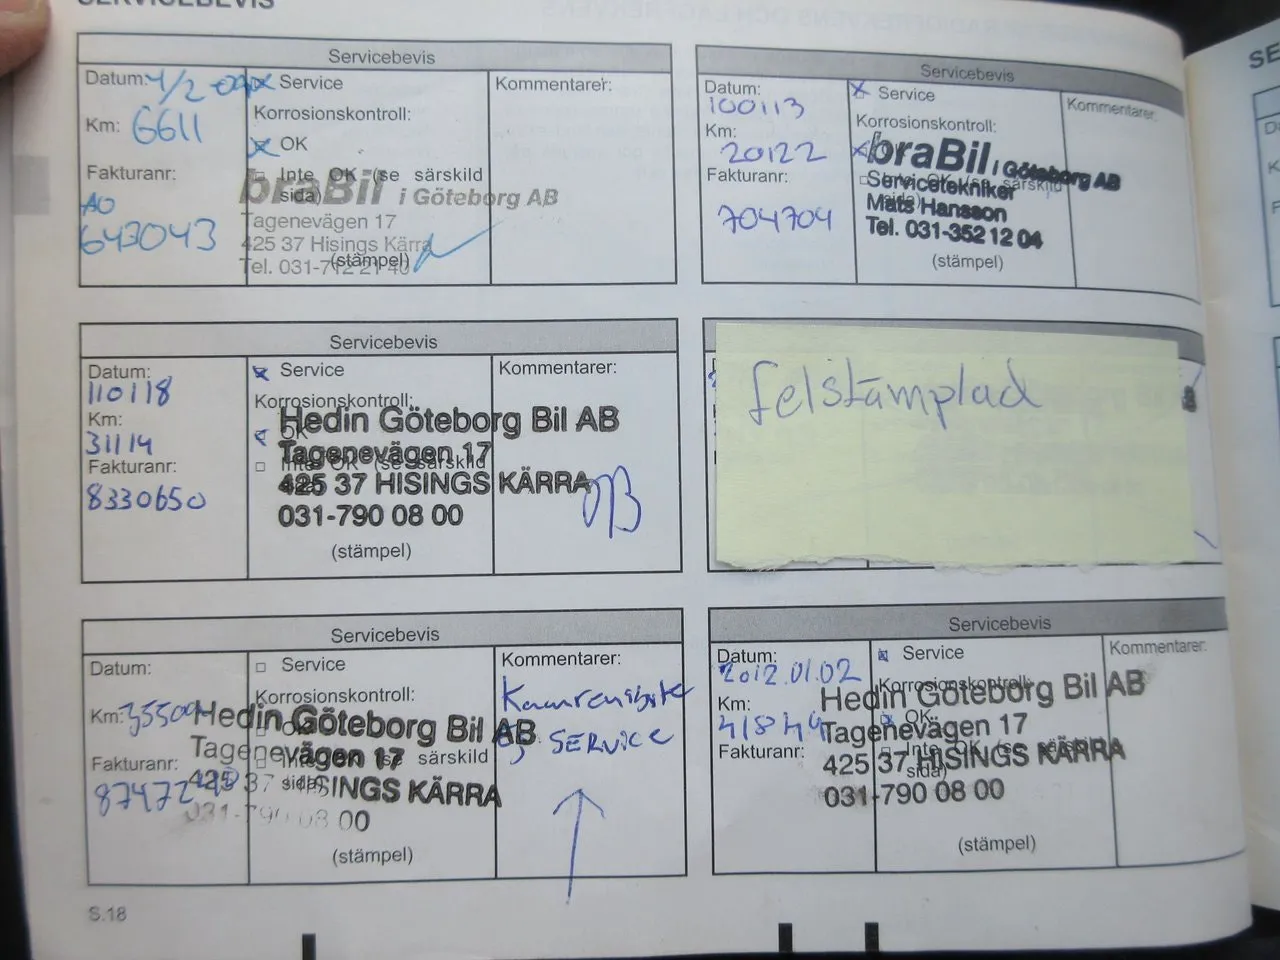 SERVICEBEVIS
Servicebevis
Datum: 4/2-09
Km: 6611
Fakturanr:
AO
643043
x Service
Korrosionskontroll:
x OK
Inte OK (se särskild
sida)
braBil i Göteborg AB
Tagenevägen 17
425 37 Hisings Kärra
(stämpel)
Tel. 031-712 21 40
Kommentarer:
Servicebevis
Datum:
100113
Km:
20122
Fakturanr:
704704
x Service
Korrosionskontroll:
x OK
braBil i Göteborg AB
Inte OK (se särskild
sida)
Servicetekniker
Mats Hansson
Tel. 031-352 12 04
(stämpel)
Kommentarer:
Servicebevis
Datum:
110118
Km:
31114
Fakturanr:
8330650
x Service
Korrosionskontroll:
OK
Inte OK (se särskild
sida)
Hedin Göteborg Bil AB
Tagenevägen 17
425 37 HISINGS KÄRRA
031-790 08 00
(stämpel)
Kommentarer:
felstämplad
Servicebevis
Datum:
Km:
Fakturanr:
Service
Korrosionskontroll:
OK
Inte OK (se särskild
sida)
Hedin Göteborg Bil AB
Tagenevägen 17
425 37 HISINGS KÄRRA
031-790 08 00
(stämpel)
Kommentarer:
SERVICE
Servicebevis
Datum:
2012.01.02
Km:
41844
Fakturanr:
x Service
Korrosionskontroll:
x OK
Inte OK (se särskild
sida)
Hedin Göteborg Bil AB
Tagenevägen 17
425 37 HISINGS KÄRRA
031-790 08 00
(stämpel)
Kommentarer:
S.18